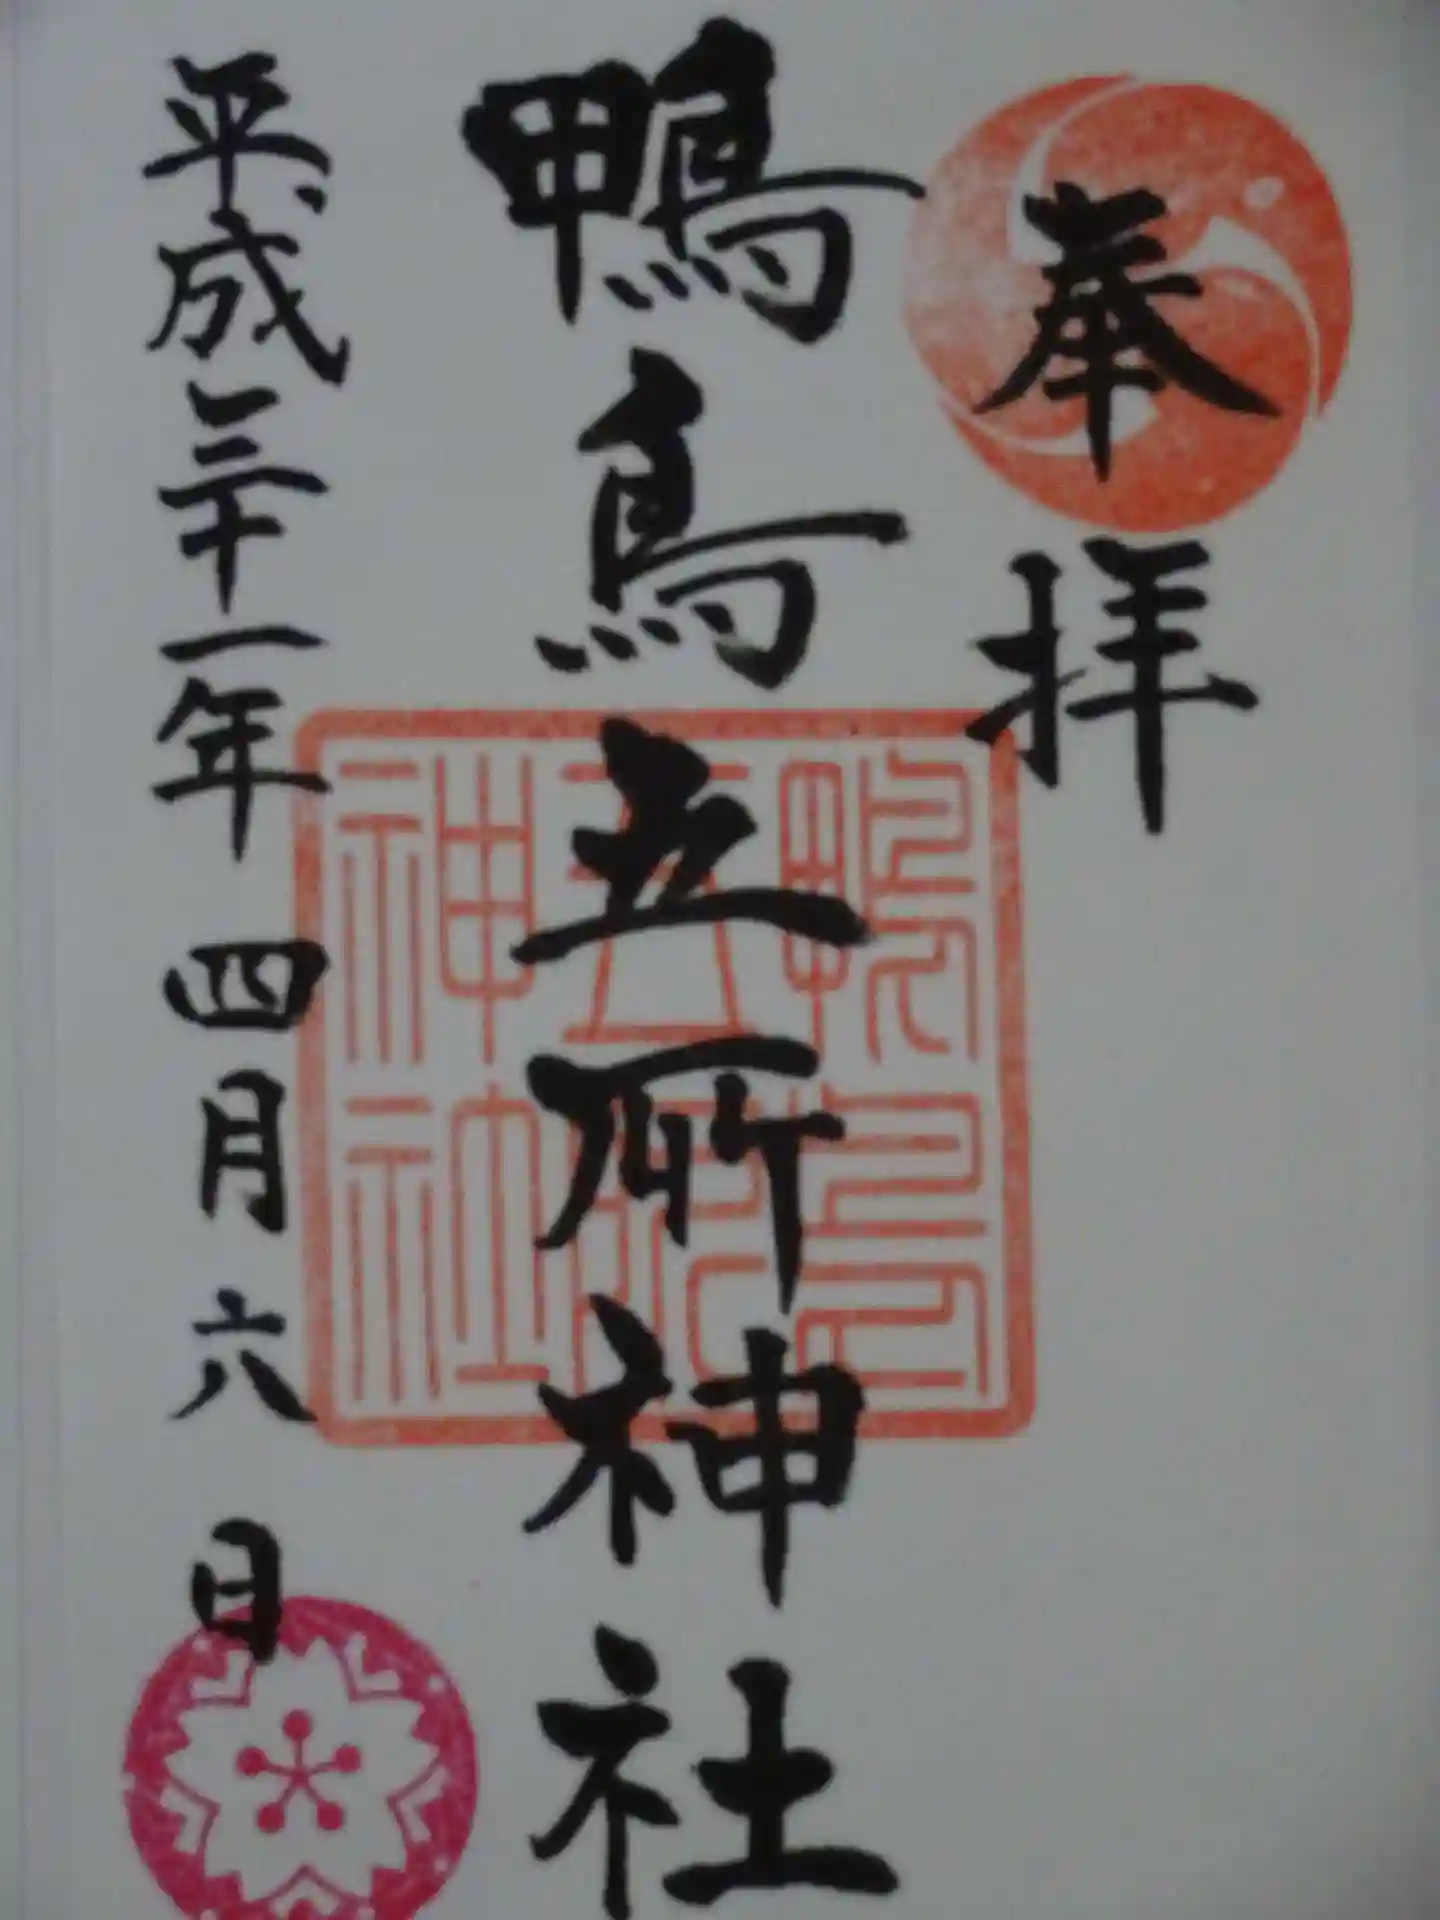 奉拝
鴨鳥五所神社
平成三十一年四月六日
鴨鳥
五所
神社